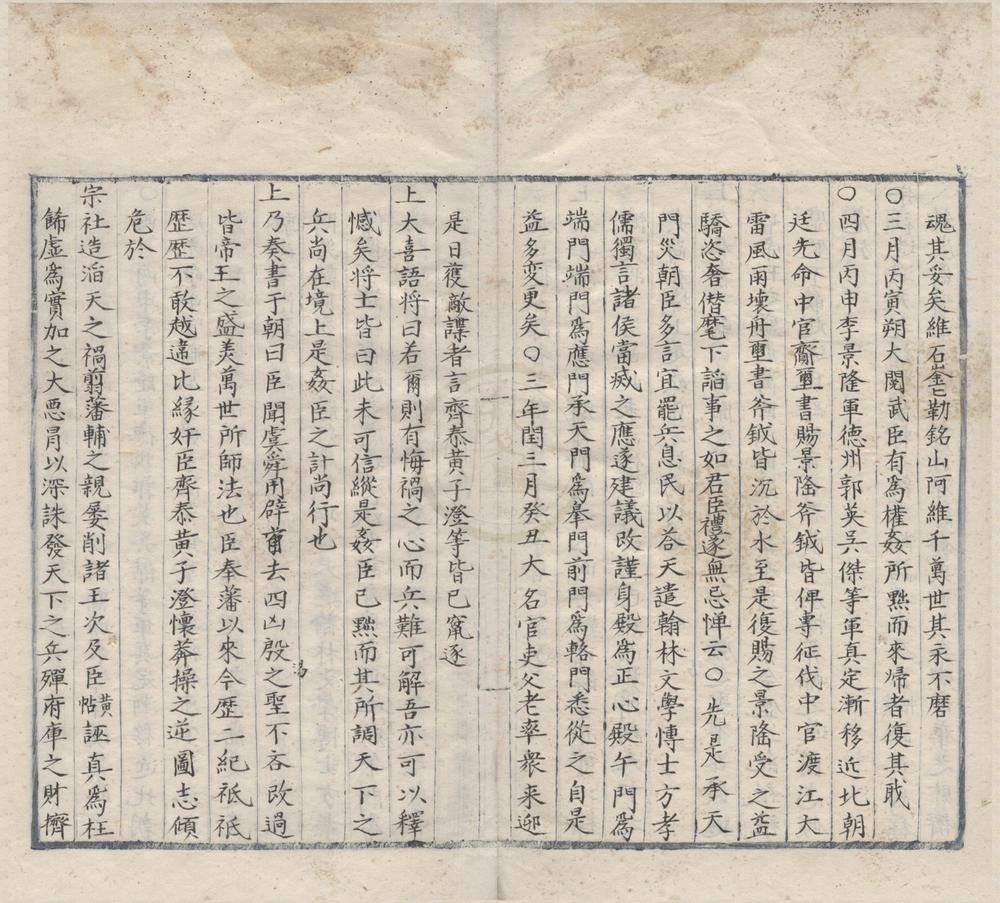 魂其妥矣維石巖巖勒銘山阿維千萬世其永不磨
○三月丙寅朔大閱武臣有爲權姦所㸃而來歸者復其職
○四月丙申李景隆軍德州郭英吳傑等軍真定漸移近北朝
廷先命中官齎璽書賜景隆斧鉞皆俾專征伐中官渡江大
雷風雨壞舟璽書斧鉞皆沉於水至是復賜之景隆受之益
驕恣奢僭麾下諂事之如君臣禮遂無忌惮云○先是承天
門災朝臣多言宜罷兵息民以荅天譴翰林文學博士方孝
儒獨言諸侯當㓕之應遂建議改謹身殿爲正心殿午門爲
端門端門爲應門承天門爲皋門前門爲輅門悉從之自是
益多変更矣○三年閏三月癸丑大名官吏父老率衆来迎
是日獲敵諜者言齊泰黄子澄等皆已竄逐
上大喜語將曰若爾則有悔禍之心而兵難可解吾亦可以釋
憾矣将士皆曰此未可信縱是姦臣已㸃而其所調天下之
兵尚在境上是姦臣之計尚行也
上乃奏書于朝曰臣聞虞舜用辟首去四凶殷湯之聖不吝改過
皆帝王之盛美萬世所師法也臣奉藩以來今歷二紀祇祇
歷歷不敢越違比緣奸臣齊泰黄子澄懷莽操之逆圖志傾
危於
宗社造滔天之禍翦藩輔之親屢削諸王次及臣黄帖誣真爲枉
飾虛爲實加之大惡冐以深誅發天下之兵殫府庫之財擠